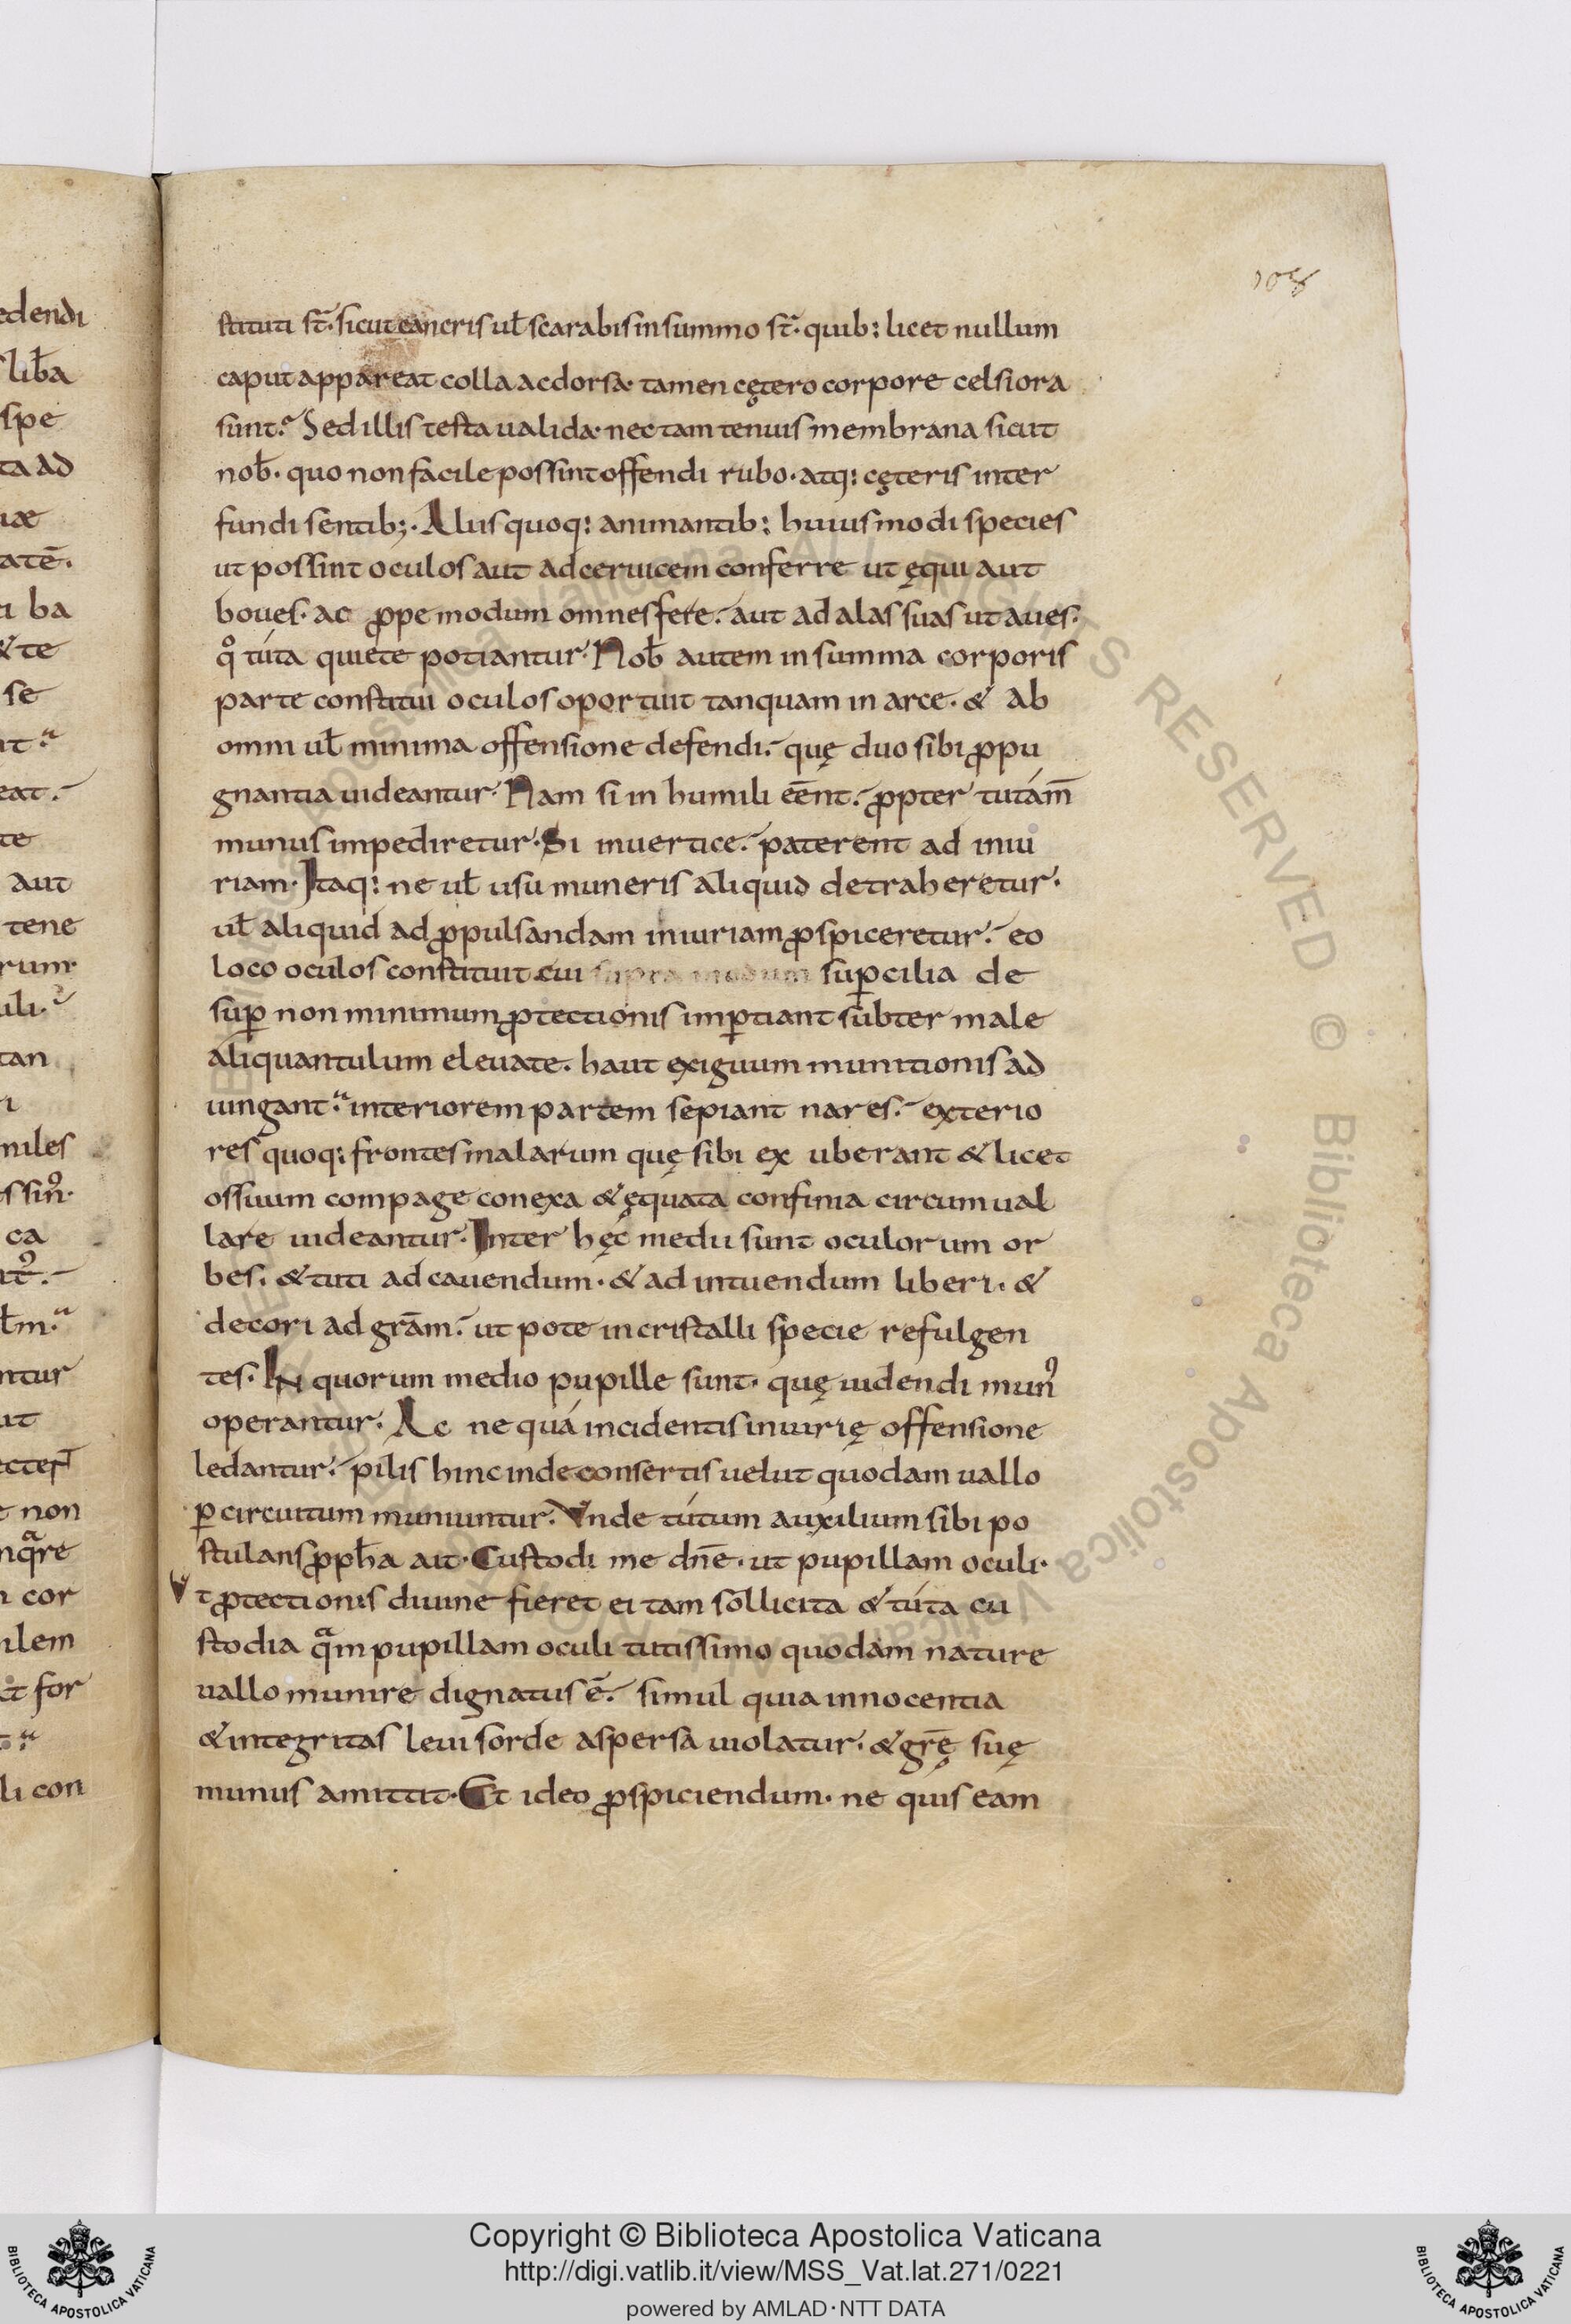 edendi
lib̄a
spe
ta ad
iæ
atē.
ba
&te
se
eat.
te
aut
tene
tan
miles
ca
ntur
ut
non
cor
ilem
for
li con
108
stituti st̄. sicut cancris ul̄ scarabis in summo st̄. quib: licet nullum
caput appareat colla ac dorsa. tamen cętero corpore celsiora
sunt. Sed illis testa ualida. nec tam tenuis membrana sicut
nob̄. quo non facile possint offendi rubo. atq: cęteris inter
fundi sentib;. Aliis quoq: animantib: huiusmodi species
ut possint oculos aut ad ceruicem conferre ut ęqui aut
boues. ac ꝓpe modum omnes fere. aut ad alas suas ut aues.
qͦ túta quiete potiantur. Nob̄ autem in summa corporis
parte constitui oculos oportuit tanquam in arce. & ab
omni ul̄ minima offensione defendi. quę duo sibi ꝓpu
gnantia uideantur. Nam si in humili eēnt. ꝓpter tutám̄
munus impediretur. Si in uertice. paterent ad iniu
riam. Itaq: ne ul̄ usu muneris aliquid detraheretur.
ul̄ aliquid ad ꝓpulsandam iniuriam ꝓspiceretur. eo
loco oculos constituit cui supra modum suꝑcilia de
suꝑ non minimum ꝓtectionis imꝑtiant subter male
aliquantulum eleuate. haut exiguum munitionis ad
iungant. interiorem partem sepiant nares. exterio
res quoq: frontes malarum quę sibi ex uberant & licet
ossiuum compage conexa & ęquata confinia circumual
lare uideantur. Inter hęc medii sunt oculorum or
bes. & tuti ad cauendum. & ad intuendum liberi. &
decori ad grām. ut pote in cristalli specie refulgen
tes. IN quorum medio pupille sunt. quę uidendi munꝰ
operantur. Ac ne quá incidentis iniurię offensione
ledantur. pilis hinc inde consertis uelut quodam uallo
ꝑ circuitum muniuntur. Vnde tútum auxilium sibi po
stulans ꝓph̄a ait. Custodi me dn̄e. ut pupillam oculi.
Vt ꝓtectionis diuine fieret ei tam sollicita & túta cu
stodia qᵃm pupillam oculi tutissimo quodam nature
uallo munire dignatus ē. simul quia innocentia
& integritas leui sorde aspersa uiolatur. & grę̄ suę
munus amittit. Et ideo ꝓspiciendum. ne quis eam
Biblioteca Apostolica Vaticana ALL RIGHTS RESERVED © Biblioteca Apostolica Vaticana
Copyright © Biblioteca Apostolica Vaticana
http://digi.vatlib.it/view/MSS_Vat.lat.271/0221
powered by AMLAD·NTT DATA
BIBLIOTECA APOSTOLICA VATICANA
BIBLIOTECA APOSTOLICA VATICANA